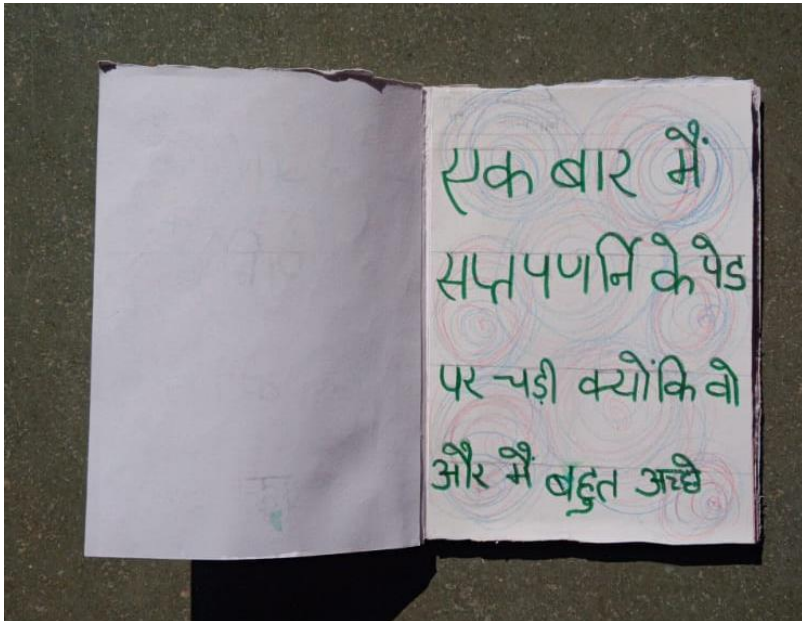 एक बार मैं
सप्तपणर्नि के पेड
पर चड़ी क्योंकि वो
और मैं बहुत अच्छे